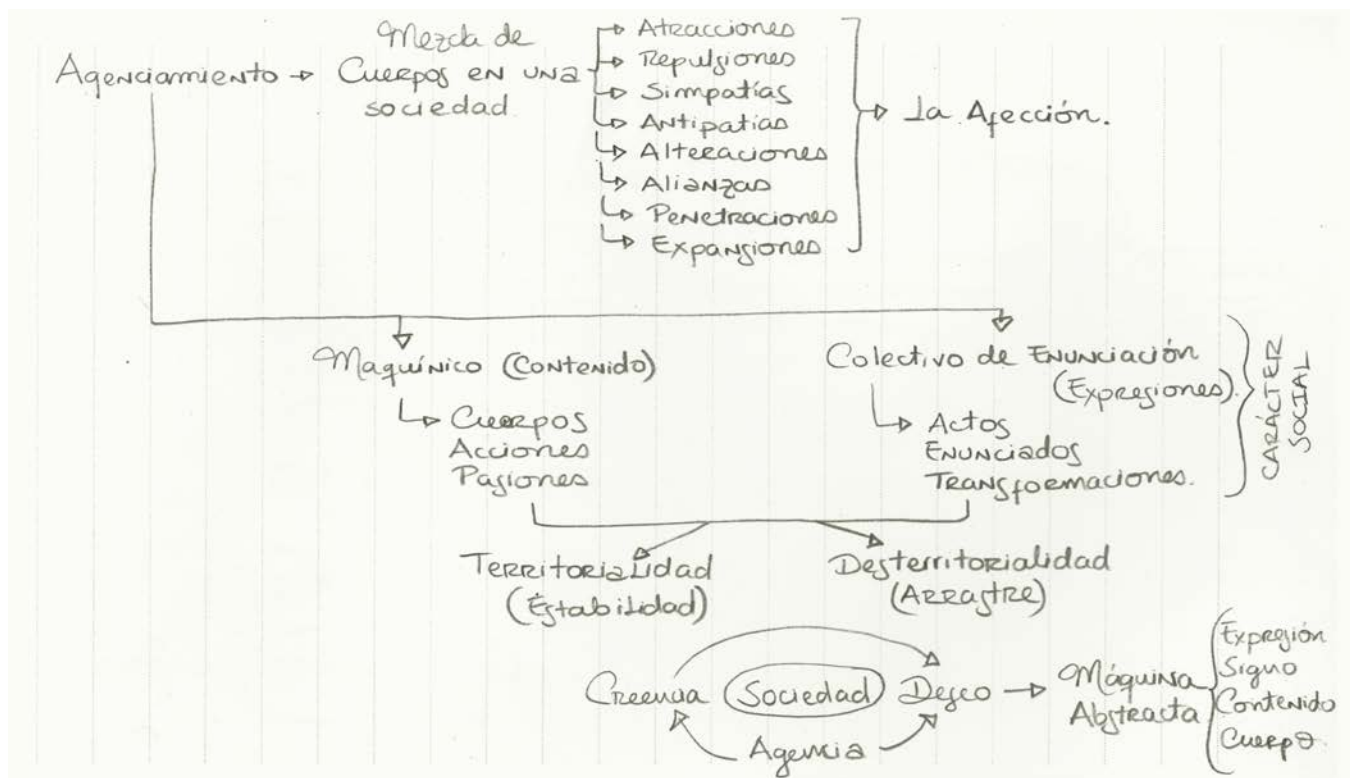 Agenciamiento
Mezcla de
Cuerpos en una
sociedad
Atracciones
Repulsiones
Simpatías
Antipatias
Alteraciones
Alianzas
Penetraciones
Expansiones
La Afección.
Maquínico (Contenido)
Cuerpos
Acciones
Pasiones
Colectivo de Enunciación
(Expresiones).
Actos
Enunciados
Transformaciones.
CARÁCTER
SOCIAL
Territorialidad
(Estabilidad)
Desterritorialidad
(Arrastre)
Creencia Sociedad Deseo
Agencia
Máquina
Abstracta
Expresión
Signo
Contenido
Cuerpo